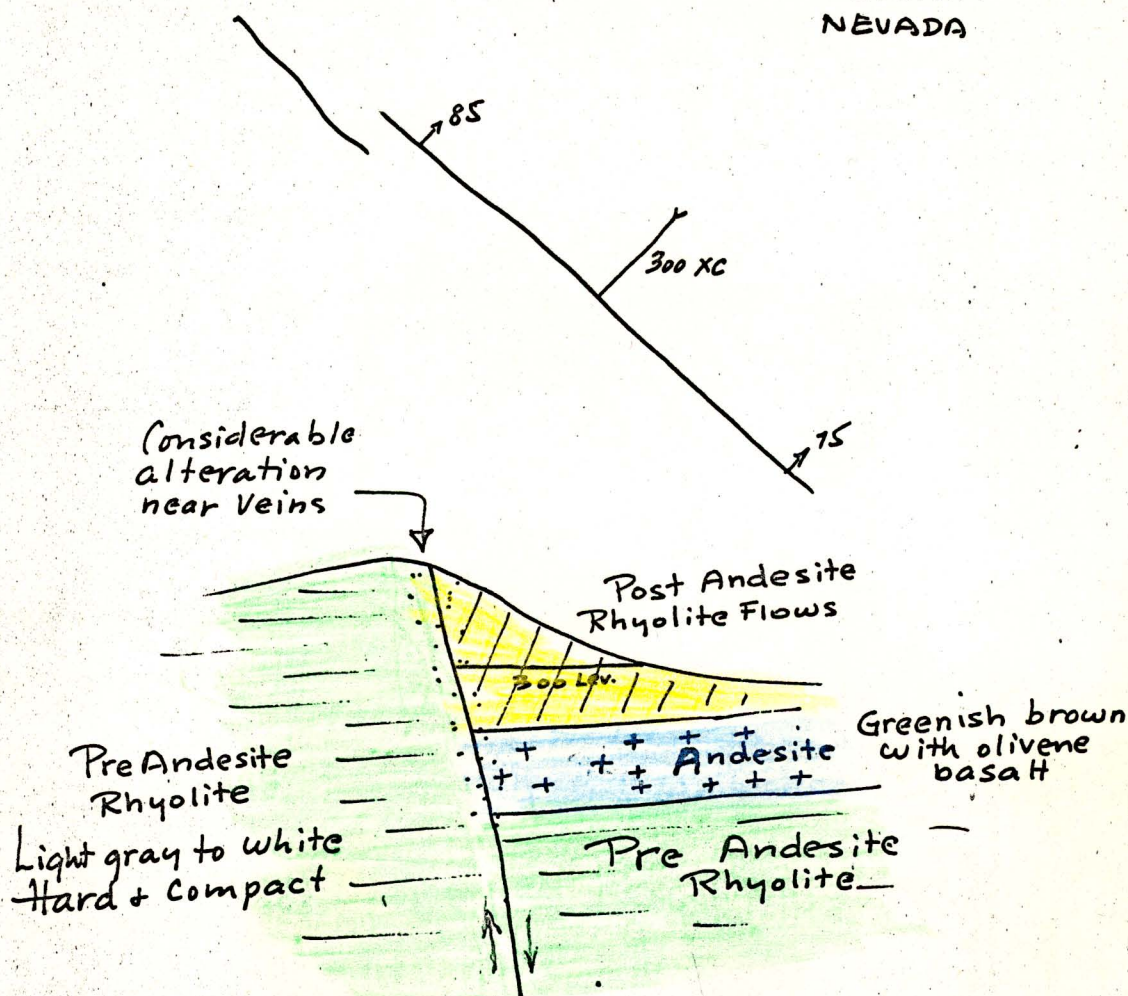 NEVADA
85
300 XC
75
Considerable
alteration
near Veins
Post Andesite
Rhyolite Flows
300 Lev.
Greenish brown
with olivene
basalt
Andesite
Pre Andesite
Rhyolite
Light gray to white
Hard & Compact
Pre Andesite
Rhyolite